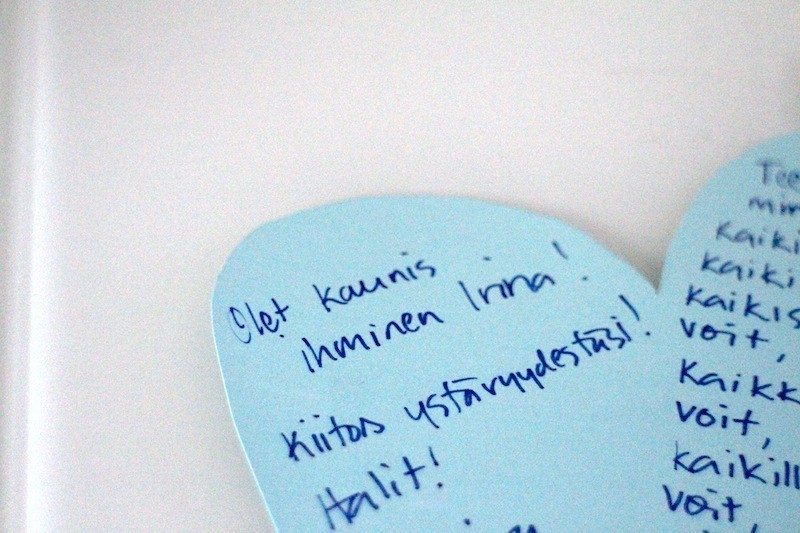 Olet kaunis
ihminen Irina!
Kiitos ystävyydestäsi!
Halit!
Tee
kaiki
kaiki
kaikis
voit,
kaikk
voit,
kaikill
voit,